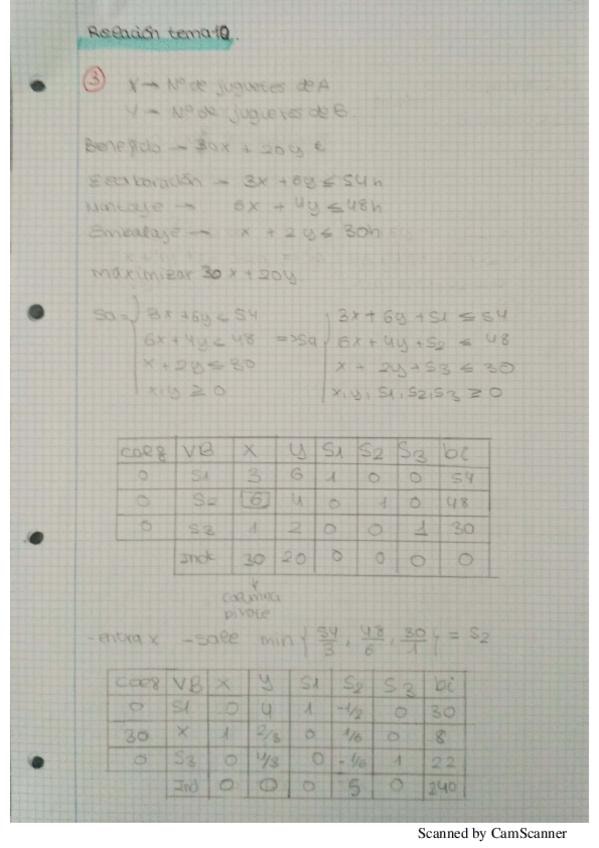 Relación tema 10.
③ X → Nº de juguetes de A
Y → Nº de juguetes de B.
Beneficio → 30x + 20y €
Elaboración → 3x + 6y ≤ 54h
Montaje → 6x + 4y ≤ 48h
Embalaje → x + 2y ≤ 30h
maximizar 30x + 20y
sa = 3x + 6y ≤ 54
6x + 4y ≤ 48
x + 2y ≤ 30
x, y ≥ 0
=> sa 3x + 6y + S1 ≤ 54
6x + 4y + S2 ≤ 48
x + 2y + S3 ≤ 30
x, y, S1, S2, S3 ≥ 0
coeg VB X Y S1 S2 S3 bi
0 S1 3 6 1 0 0 54
0 S2 6 4 0 1 0 48
0 S3 1 2 0 0 1 30
Ind 30 20 0 0 0 0
columna
pivote
- entra x - sale min { 54/3 , 48/6 , 30/1 } = S2
coeg VB X Y S1 S2 S3 bi
0 S1 0 4 1 -1/2 0 30
30 X 1 2/3 0 1/6 0 8
0 S3 0 4/3 0 -1/6 1 22
Ind 0 0 0 5 0 240
Scanned by CamScanner